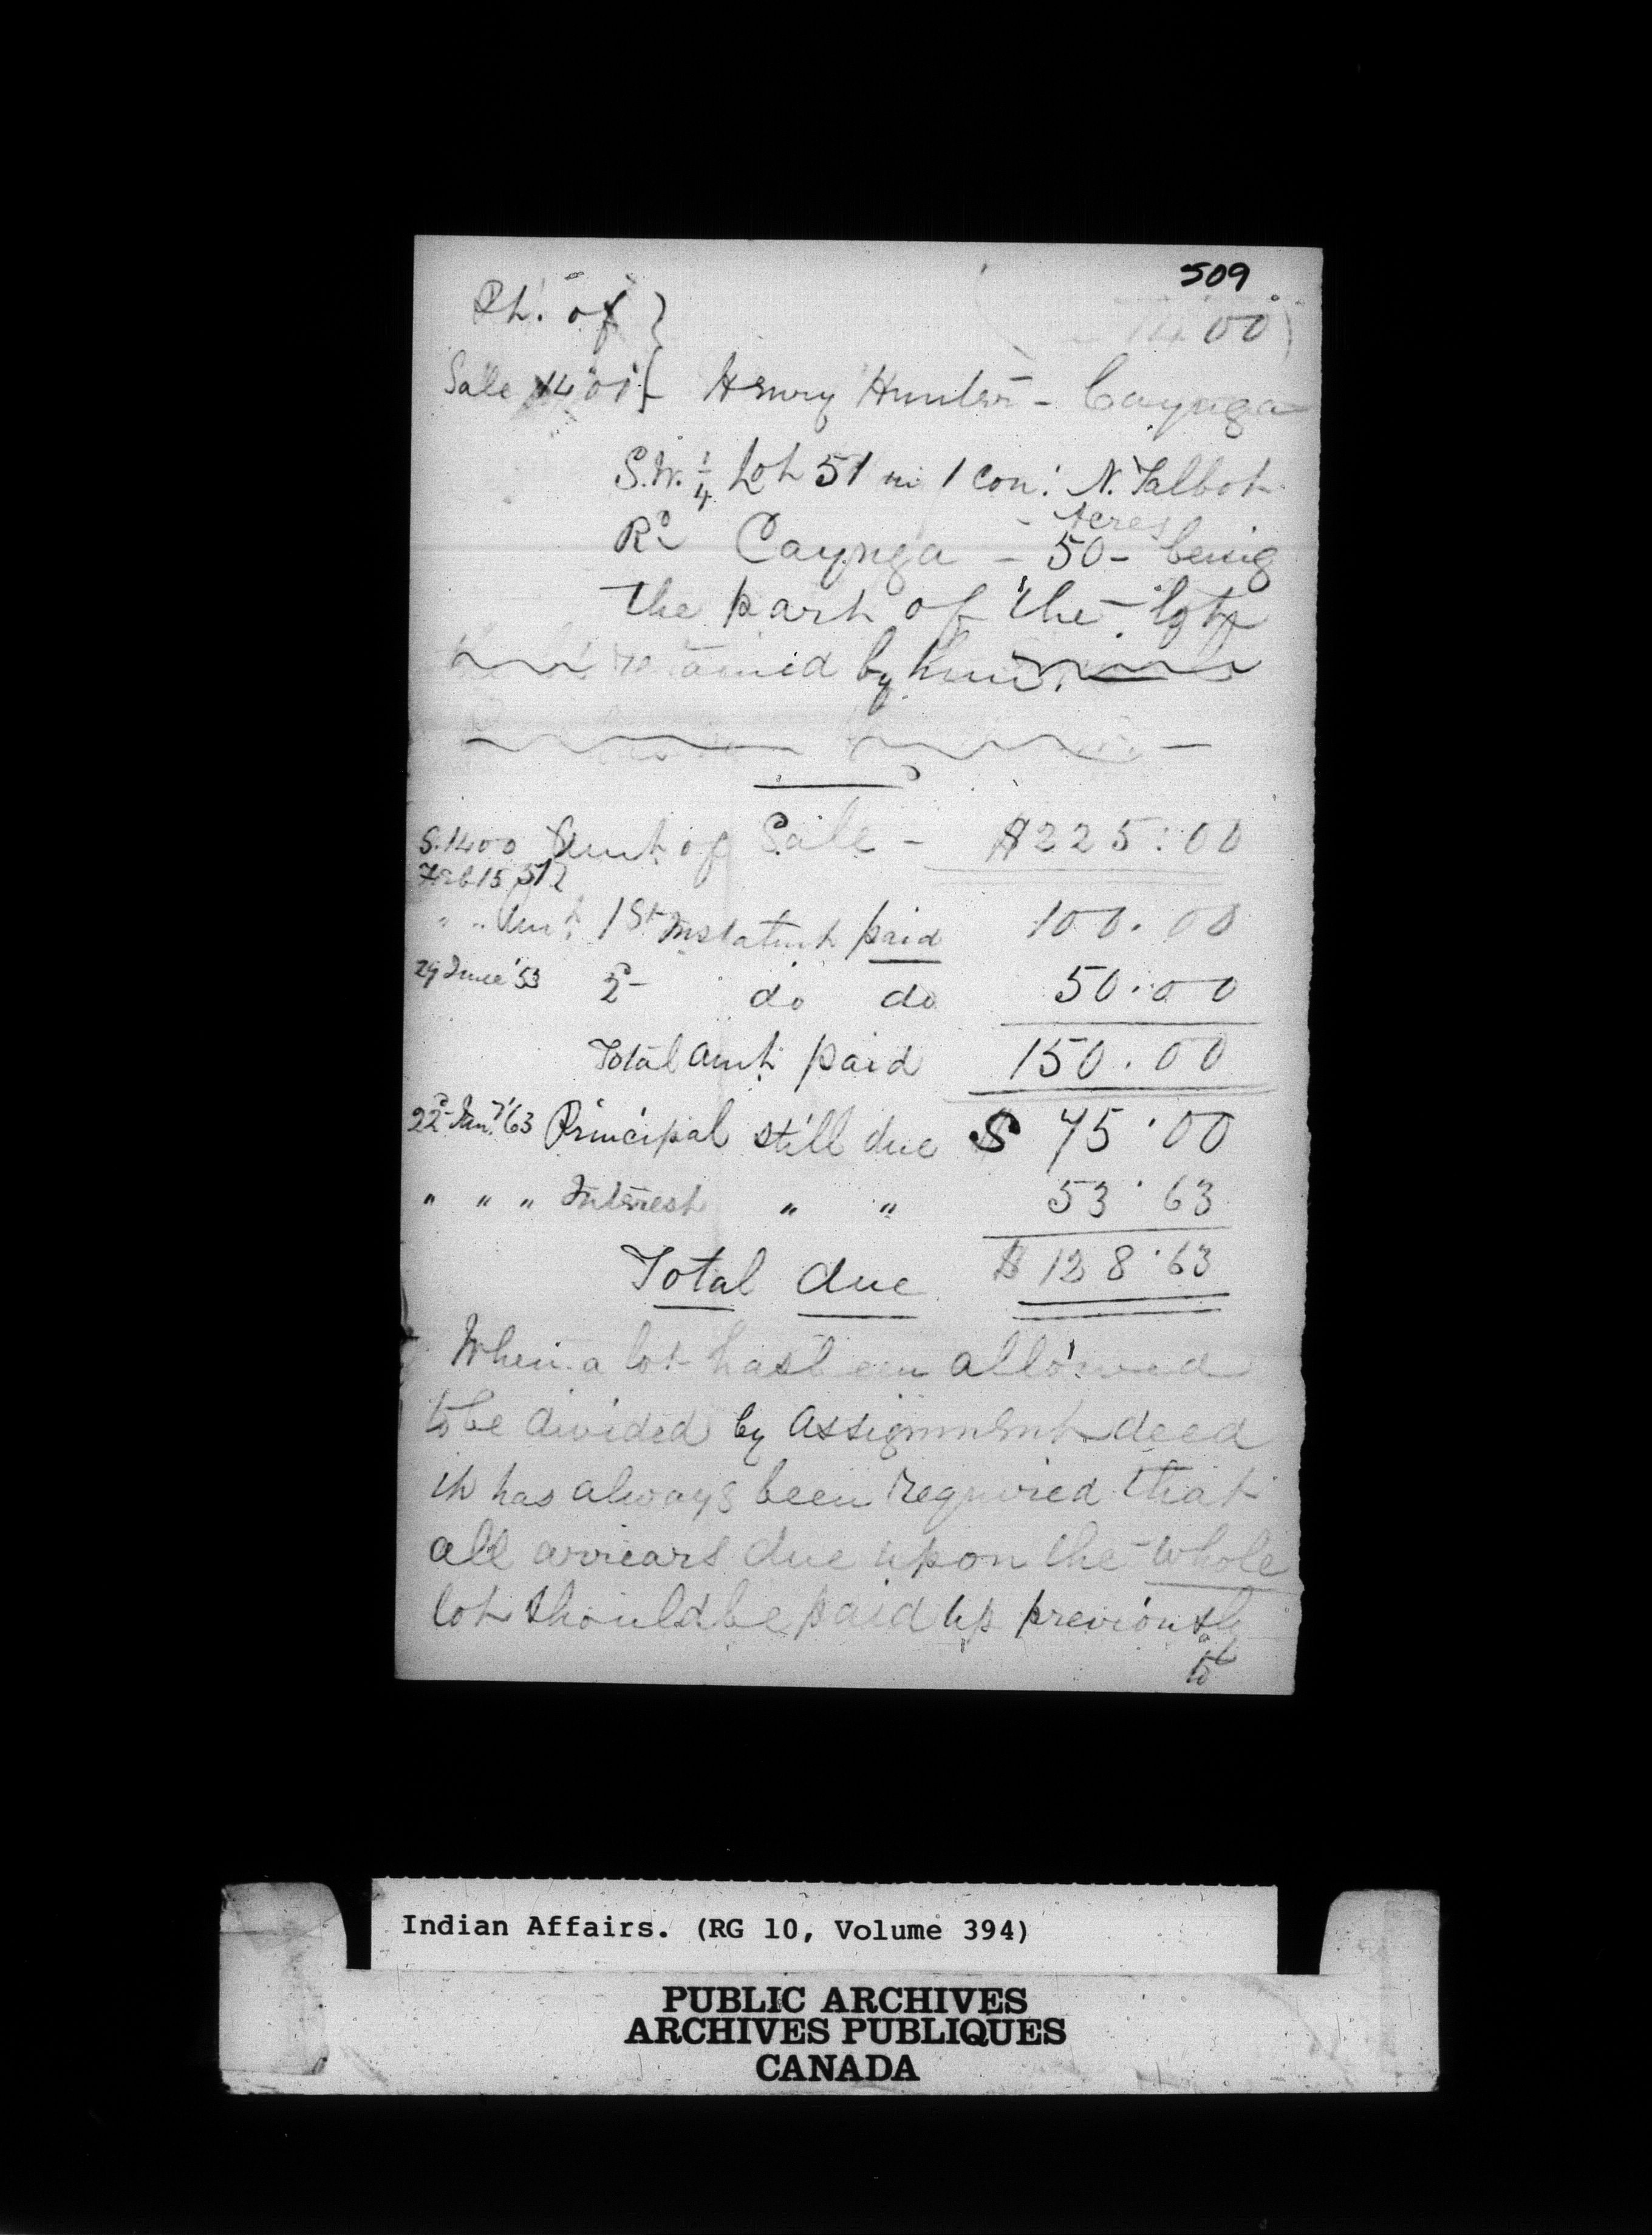 509
Pt. of }
1400)
Sale 1401 { Henry Hunter - Cayuga
S.W. 1/4 Lot 51 in 1 Con: N. Talbot
Acres
Rd Cayuga - 50 - being
the part of the lot
retained by him.
S. 1400 Amt of Sale - $225:00
Feb 15 51
" " Amt. 1st Instatmt paid 100.00
29 June '53 2d do do 50.00
Total amt. paid 150.00
22d Jany '63 Principal still due $ 75.00
" " " Interest " " 53.63
Total due $128.63
When a lot has been allowed
to be divided by assignment deed
it has always been required that
all arrears due upon the whole
lot should be paid up previously
to
Indian Affairs. (RG 10, Volume 394)
PUBLIC ARCHIVES
ARCHIVES PUBLIQUES
CANADA